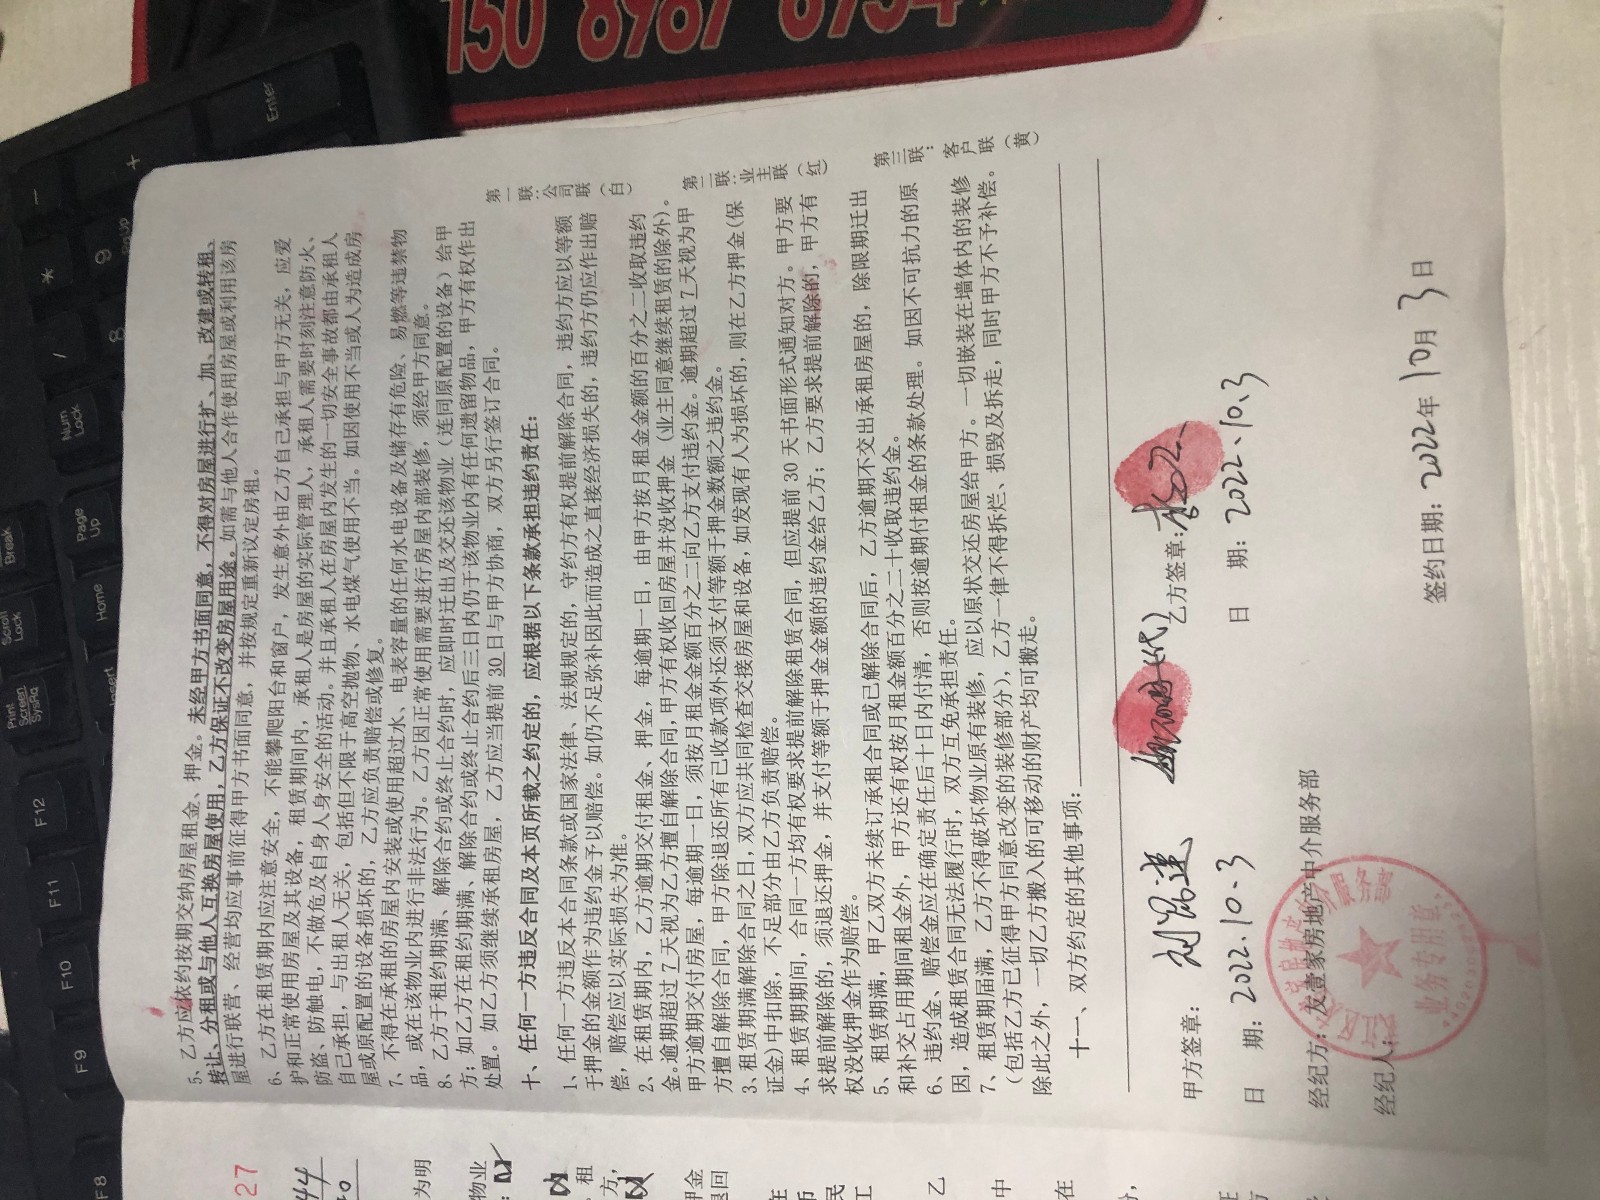 150 8987 6934
5、乙方应依约按期交纳房屋租金、押金。未经甲方书面同意，不得对房屋进行扩、加、改建或转租、
转让、分租或与他人互换房屋使用，乙方保证不改变房屋用途。如需与他人合作使用房屋或利用该房
屋进行联营、经营均应事前征得甲方书面同意，并按规定重新议定房租。
6、乙方在租赁期内应注意安全，不能攀爬阳台和窗户，发生意外由乙方自己承担与甲方无关，应爱
护和正常使用房屋及其设备，租赁期间内，承租人是房屋的实际管理人，承租人需要时刻注意防火、
防盗、防触电，不做危及自身人身安全的活动。并且承租人在房屋内发生的一切安全事故都由承租人
自己承担，与出租人无关，包括但不限于高空抛物、水电煤气使用不当。如因使用不当或人为造成房
屋或原配置的设备损坏的，乙方应负责赔偿或修复。
7、不得在承租的房屋内安装或使用超过水、电表容量的任何水电设备及储存有危险、易燃等违禁物
品，或在该物业内进行非法行为。乙方因正常使用需要进行房屋内部装修，须经甲方同意。
8、乙方于租约期满、解除合约或终止合约时，应即时迁出及交还该物业（连同原配置的设备）给甲
方；如乙方在租约期满、解除合约或终止合约后三日内仍于该物业内有任何遗留物品，甲方有权作出
处置。如乙方须继续承租房屋，乙方应当提前 30 日与甲方协商，双方另行签订合同。
十、任何一方违反合同及本页所载之约定的，应根据以下条款承担违约责任：
1、任何一方违反本合同条款或国家法律、法规规定的，守约方有权提前解除合同，违约方应以等额
于押金的金额作为违约金予以赔偿。如仍不足弥补因此而造成之直接经济损失的，违约方仍应作出赔
偿，赔偿应以实际损失为准。
2、在租赁期内，乙方逾期交付租金、押金，每逾期一日，由甲方按月租金金额的百分之二收取违约
金。逾期超过 7 天视为乙方擅自解除合同，甲方有权收回房屋并没收押金（业主同意继续租赁的除外）。
甲方逾期交付房屋，每逾期一日，须按月租金金额百分之二向乙方支付违约金。逾期超过 7 天视为甲
方擅自解除合同，甲方除退还所有已收款项外还须支付等额于押金数额之违约金。
3、租赁期满解除合同之日，双方应共同检查交接房屋和设备，如发现有人为损坏的，则在乙方押金(保
证金)中扣除，不足部分由乙方负责赔偿。
4、租赁期期间，合同一方均有权要求提前解除租赁合同，但应提前 30 天书面形式通知对方。甲方要
求提前解除的，须退还押金，并支付等额于押金金额的违约金给乙方；乙方要要求提前解除的，甲方有
权没收押金作为赔偿。
5、租赁期满，甲乙双方未续订承租合同或已解除合同后，乙方逾期不交出承租房屋的，除限期迁出
和补交占用期间租金外，甲方还有权按月租金额百分之二十收取违约金。
6、违约金、赔偿金应在确定责任后十日内付清，否则按逾期付租金的条款处理。如因不可抗力的原
因，造成租赁合同无法履行时，双方互免承担责任。
7、租赁期届满，乙方不得破坏物业原有装修，应以原状交还房屋给甲方。一切嵌装在墙体内的装修
（包括乙方已征得甲方同意改变的装修部分），乙方一律不得拆烂、损毁及拆走，同时甲方不予补偿。
除此之外，一切乙方搬入的可移动的财产均可搬走。
十一、双方约定的其他事项：
第一联：公司联（白）
第二联：业主联（红）
第三联：客户联（黄）
甲方签章： 代） 乙方签章：
日 期：2022.10.3 日 期：2022.10.3
经纪方：友壹家房地产中介服务部
经纪人：
业务专用章
签约日期：2022年10月3日
27
44
为明
物业
租
方，
押金
退回
乙
中
在
Enter
Num Lock
Break
Page Up
Scroll Lock
Home
Print Screen SysRq
Insert
F12
F11
F10
F9
F8